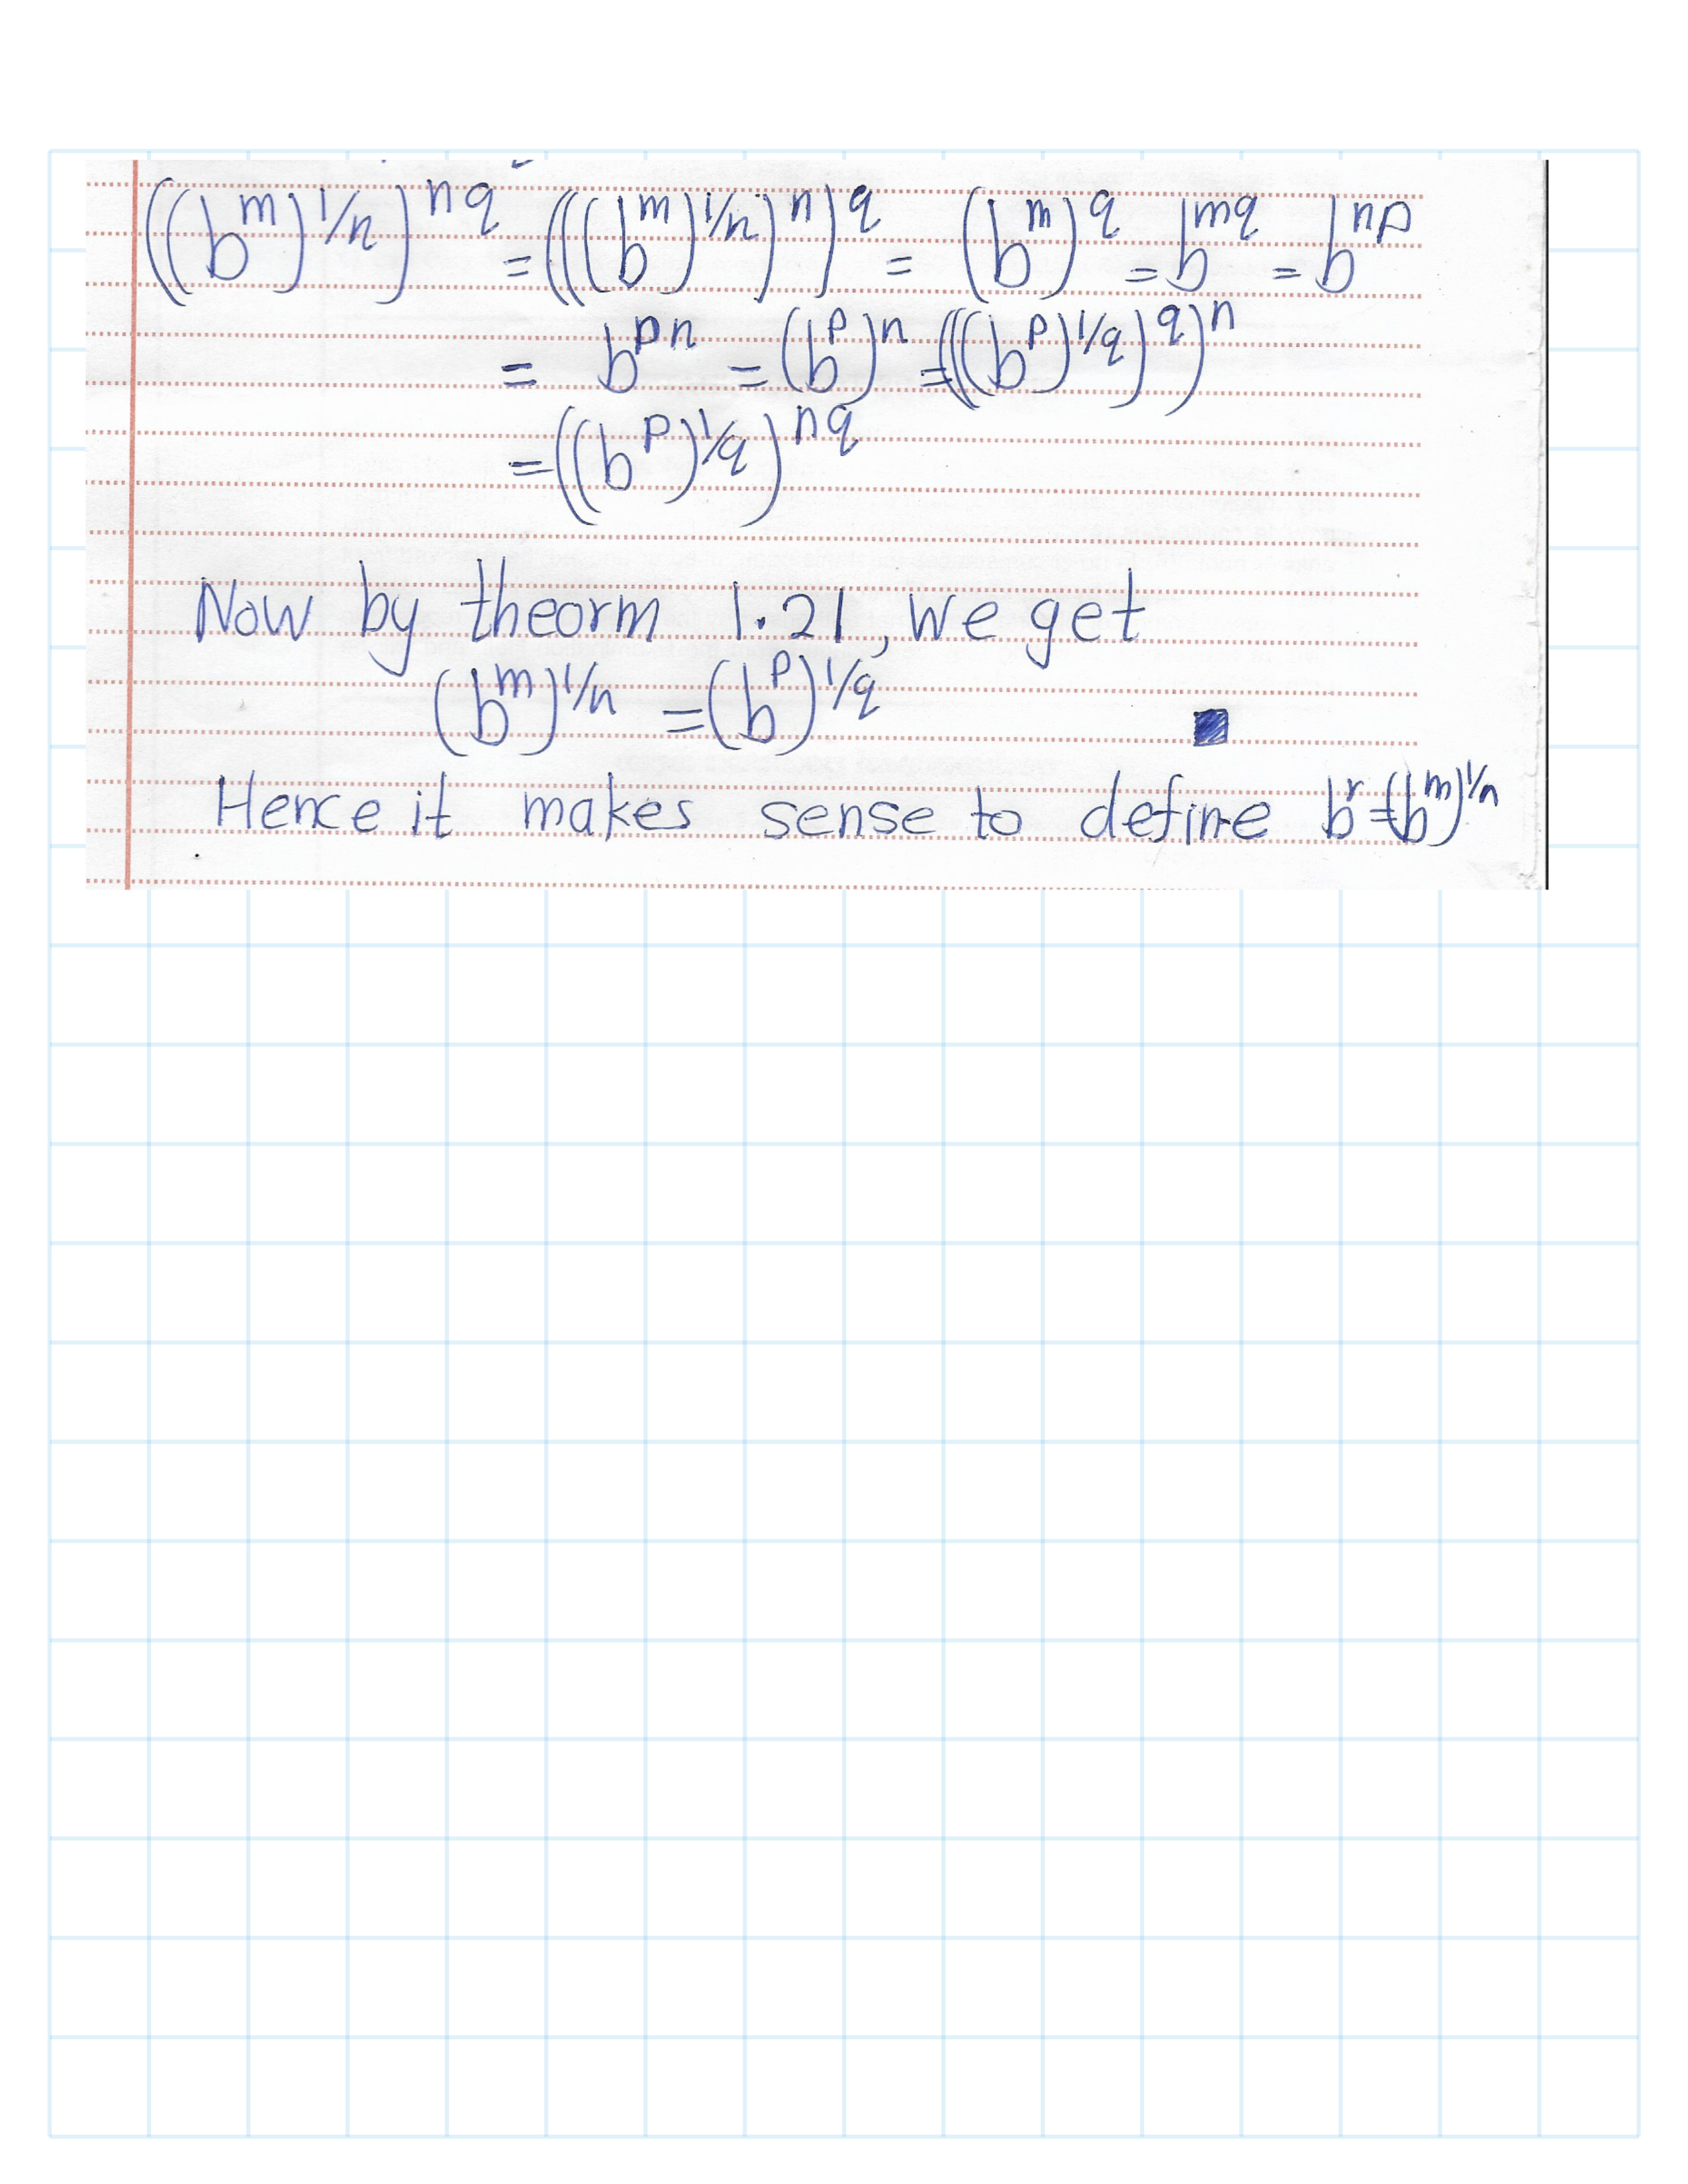 ((b^m)^{1/n})^{nq} = (((b^m)^{1/n})^n)^q = (b^m)^q = b^{mq} = b^{np}
= b^{pn} = (b^p)^n = (((b^p)^{1/q})^q)^n
= ((b^p)^{1/q})^{nq}
Now by theorm 1.21, we get
(b^m)^{1/n} = (b^p)^{1/q} ■
Hence it makes sense to define b^r = (b^m)^{1/n}